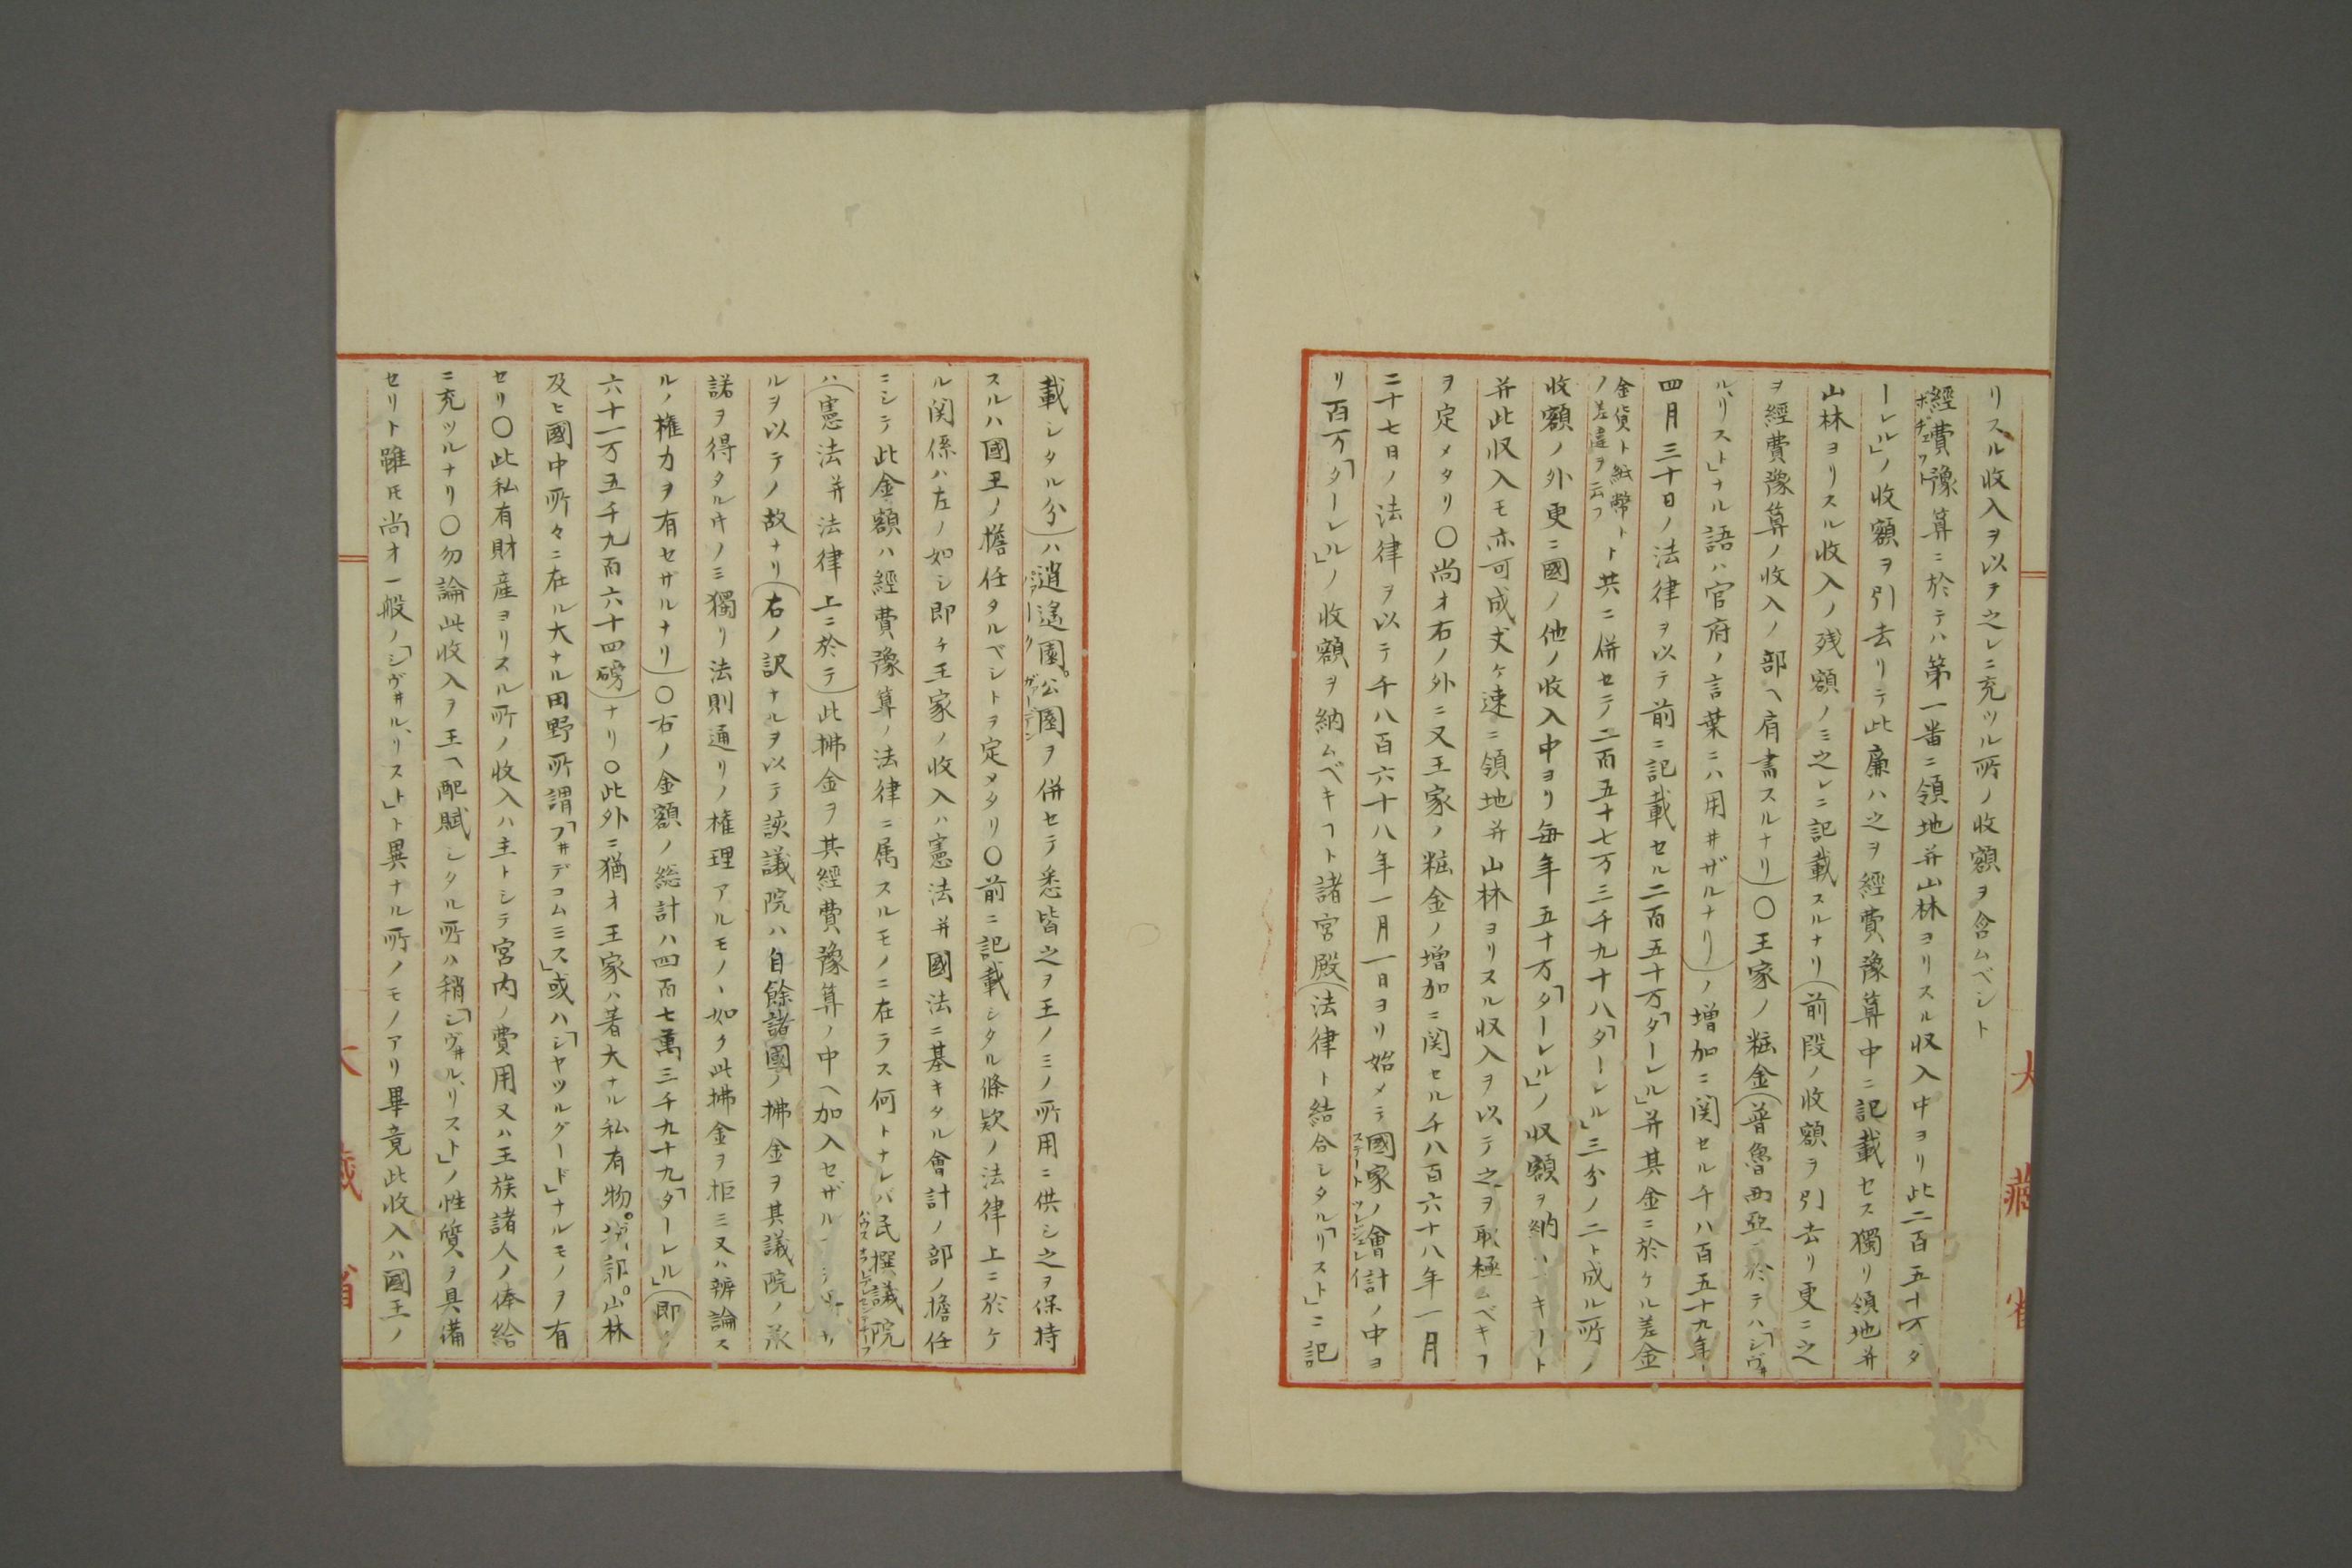 リスル收入ヲ以テ之レニ充ツル所ノ收額ヲ含ムベシト
經費豫算ニ於テハ第一番ニ領地并山林ヨリスル収入中ヨリ此二百五十万「タ
ーレル」ノ收額ヲ引去リテ此廉ハ之ヲ經費豫算中ニ記載セス獨リ領地并
山林ヨリスル收入ノ残額ノミ之レニ記載スルナリ(前段ノ收額ヲ引去リ更ニ之
ヲ經費豫算ノ收入ノ部ヘ肩書スルナリ)〇王家ノ粧金(普魯西亞ニ於テハ「シヴ井
ル、リスト」ナル語ハ官府ノ言葉ニハ用ヰザルナリ)ノ増加ニ関セル千八百五十九年
四月三十日ノ法律ヲ以テ前ニ記載セル二百五十万「ターレル」并其金ニ於ケル差金
金貨ト紙幣ト
ノ差違ヲ云フ
ト共ニ併セテ二百五十七万三千九十八「ターレル」三分ノ二ト成ル所ノ
收額ノ外更ニ國ノ他ノ收入中ヨリ毎年五十万「ターレル」ノ収額ヲ納ムベキヿト
并此収入モ亦可成丈ケ速ニ領地并山林ヨリスル収入ヲ以テ之ヲ取極ムベキヿ
ヲ定メタリ〇尚オ右ノ外ニ又王家ノ粧金ノ増加ニ関セル千八百六十八年一月
二十七日ノ法律ヲ以テ千八百六十八年一月一日ヨリ始メテ國家ノ會計ノ中ヨ
リ百万「ターレル」ノ收額ヲ納ムベキヿト諸宮殿(法律ト結合シタル「リスト」ニ記
大藏省
載シタル分)ハ逍遙園。公園ヲ併セテ悉皆之ヲ王ノミノ所用ニ供シ之ヲ保持
パーク
ガアーデン
スルハ國王ノ擔任タルベシトヲ定メタリ〇前ニ記載シタル條欵ノ法律上ニ於ケ
ル関係ハ左ノ如シ即チ王家ノ收入ハ憲法并國法ニ基キタル會計ノ部ノ擔任
ニシテ此金額ハ經費豫算ノ法律ニ属スルモノニ在ラス何トナレバ民撰議院
ハ(憲法并法律上ニ於テ)此拂金ヲ其經費豫算ノ中ヘ加入セザル
ルヲ以テノ故ナリ(右ノ訳ナルヲ以テ該議院ハ自餘諸國ノ拂金ヲ其議院ノ承
諾ヲ得タル片ノミ獨リ法則通リノ権理アルモノヽ如ク此拂金ヲ拒ミ又ハ辨論ス
ルノ権力ヲ有セザルナリ)〇右ノ金額ノ総計ハ四百七萬三千九十九「ターレル」(即チ
六十一万五千九百六十四磅)ナリ〇此外ニ猶オ王家ハ著大ナル私有物。山林
及ヒ國中所々ニ在ル大ナル田野所謂「フ井デコムミス」或ハ「シヤツルグード」ナルモノヲ有
セリ〇此私有財産ヨリスル所ノ收入ハ主トシテ宮内ノ費用又ハ王族諸人ノ俸給
ニ充ツルナリ〇勿論此收入ヲ王ヘ配賦シタル所ハ稍「シヴ井ル、リスト」ノ性質ヲ具備
セリト雖㞮尚オ一般ノ「シヴ井ル、リスト」ト異ナル所ノモノアリ畢竟此收入ハ國王ノ
大藏省